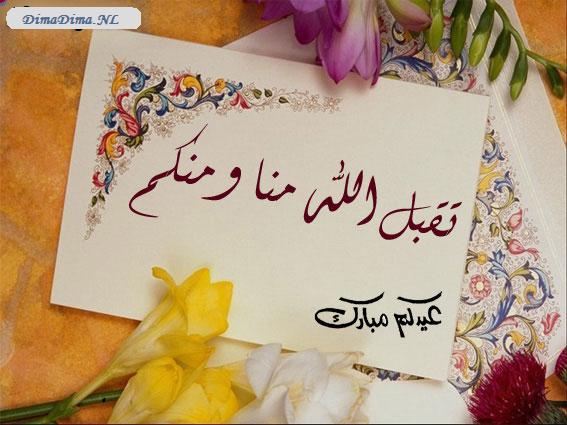 DimaDima.NL
تقبل الله منا ومنكم
عيدكم مبارك